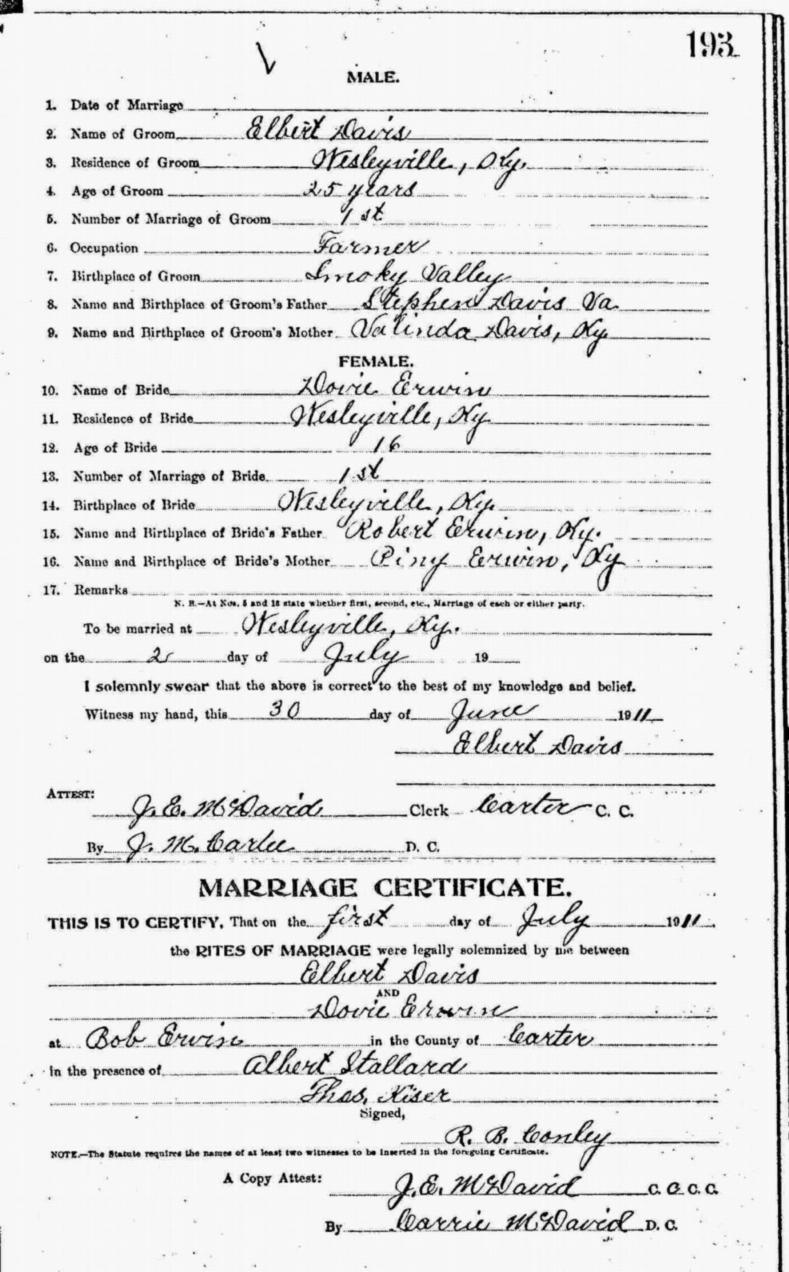 193
MALE.
1. Date of Marriage
2. Name of Groom Elbert Davis
3. Residence of Groom Wesleyville, Ky.
4. Age of Groom 25 years
5. Number of Marriage of Groom 1st
6. Occupation Farmer
7. Birthplace of Groom Smoky Valley
8. Name and Birthplace of Groom's Father Stephen Davis Va
9. Name and Birthplace of Groom's Mother Valinda Davis, Ky
FEMALE.
10. Name of Bride Dovie Erwin
11. Residence of Bride Wesleyville, Ky
12. Age of Bride 16
13. Number of Marriage of Bride 1st
14. Birthplace of Bride Wesleyville, Ky.
15. Name and Birthplace of Bride's Father Robert Erwin, Ky.
16. Name and Birthplace of Bride's Mother Piny Erwin, Ky
17. Remarks
N. B.—At Nos. 5 and 13 state whether first, second, etc., Marriage of each or either party.
To be married at Wesleyville, Ky.
on the 2 day of July 19
I solemnly swear that the above is correct to the best of my knowledge and belief.
Witness my hand, this 30 day of June 1911
Elbert Davis
ATTEST:
J. E. McDavid Clerk Carter C. C.
By J. M. D. C.
MARRIAGE CERTIFICATE.
THIS IS TO CERTIFY, That on the first day of July 1911
the RITES OF MARRIAGE were legally solemnized by me between
Elbert Davis
AND
Dovie Erwin
at Bob Erwin in the County of Carter
In the presence of Albert Stallard
Thos. Kiser
Signed,
R. B. Conley
NOTE.—The Statute requires the names of at least two witnesses to be inserted in the foregoing Certificate.
A Copy Attest: J. E. McDavid C. C. C. C.
By Carrie McDavid D. C.